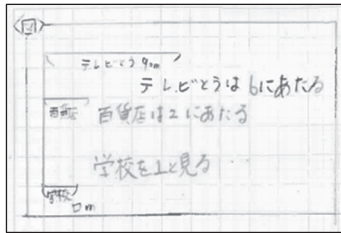 図
テレビとう90m
テレビとうは6にあたる
百貨店 百貨店は2にあたる
学校を1と見る
学校
□m